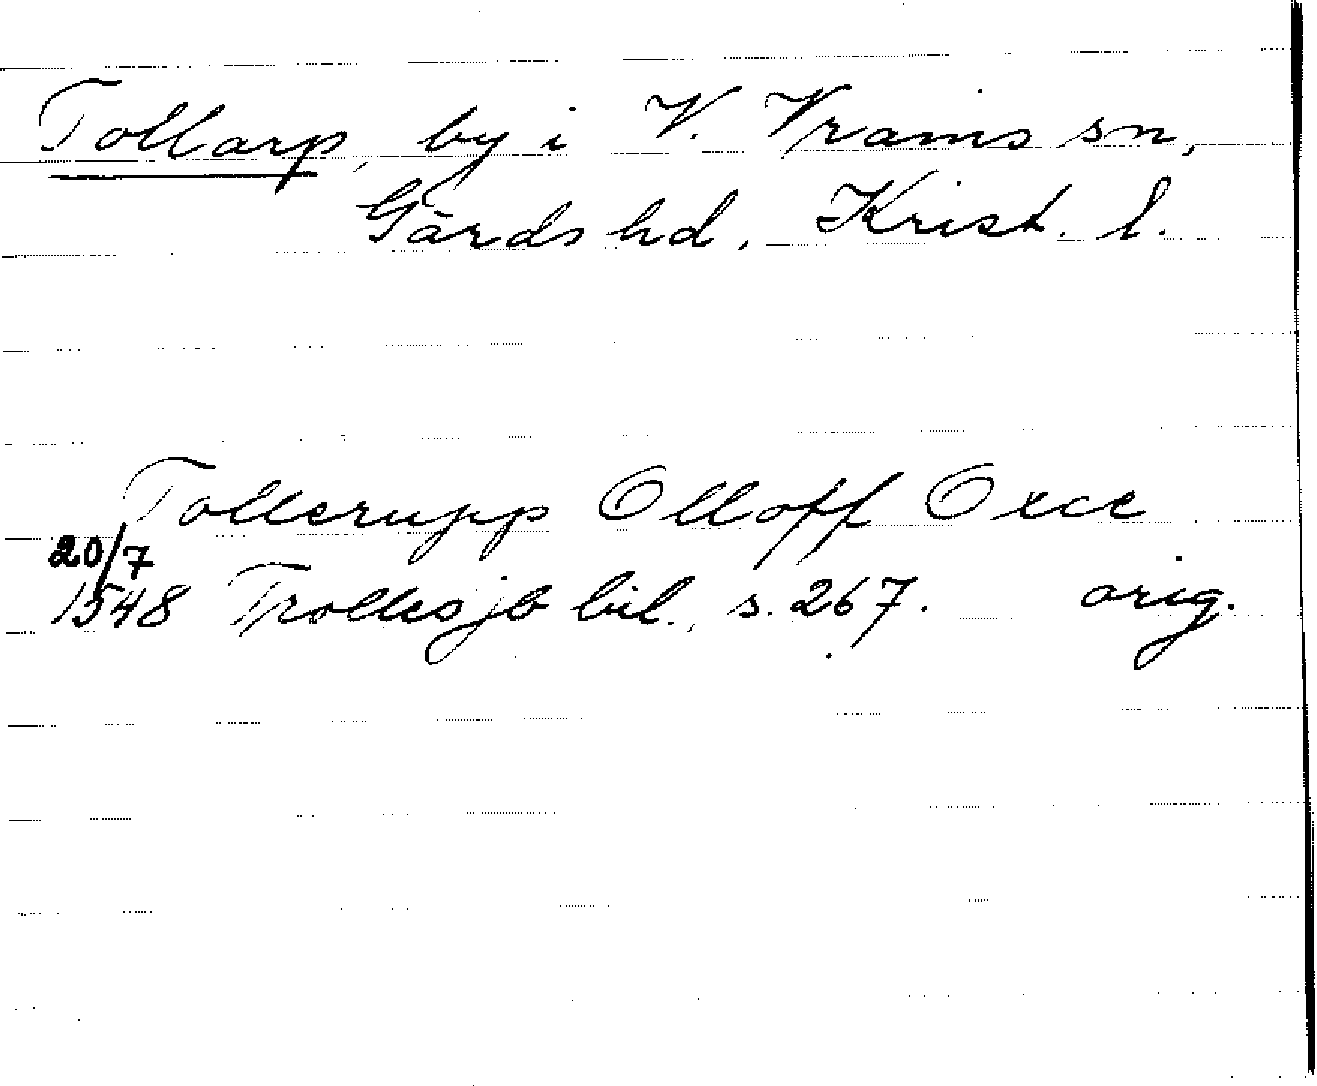 Tollarp, by i V. Vrams sn,
Gärds hd, Krist. l.
Tollerupp Olloff Oxce
20/7
1548 Trollesjb bil., s. 267. orig.